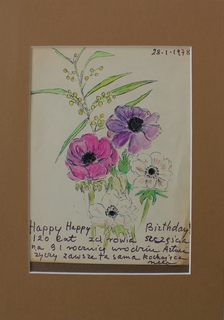 28-1-1978
Happy Happy Birthday!
120 lat zdrowia szczęścia
na 91 rocznicę urodzin
życzy zawsze ta sama kochająca